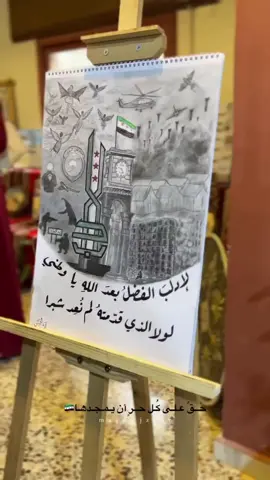 لإدلبَ الفضلُ بعدَ اللهِ يا وطني
لولا الذي قدّمتهُ لم نُعد شبرا
حقٌ على كُل حرٍ أن يمجدها